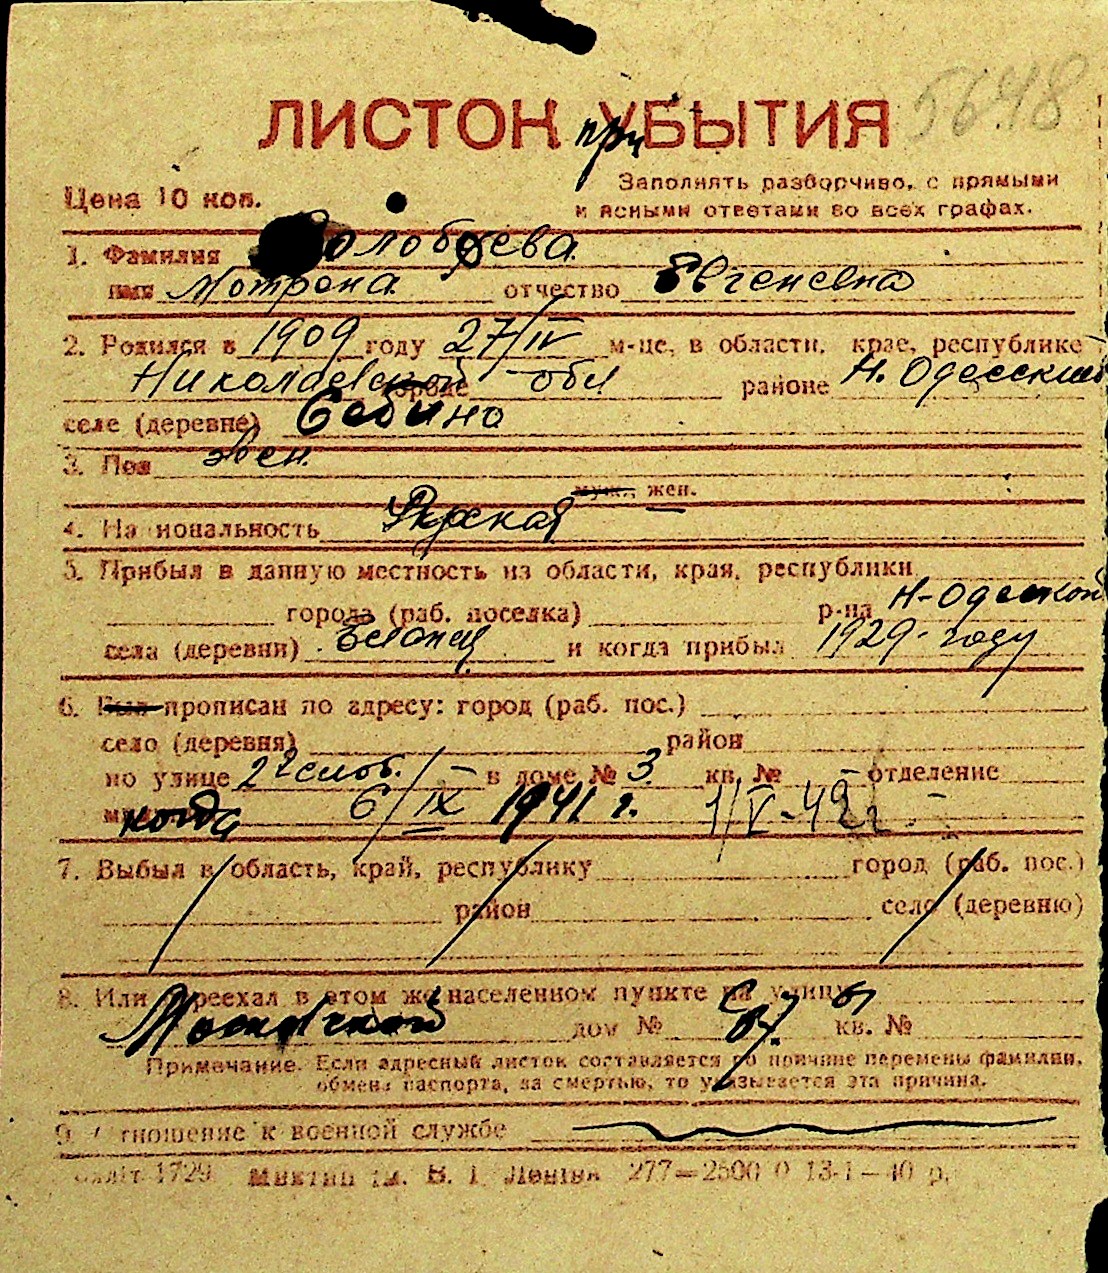 5648
ЛИСТОК УБЫТИЯ
при
Цена 10 коп.
Заполнять разборчиво, с прямыми
и ясными ответами во всех графах.
1. Фамилия
имя Мотрона отчество Евгеневна
2. Родился в 1909 году 27/IV м-це, в области, крае, республике
Николаевской обл городе районе Н. Одесский
селе (деревне) Себино
3. Пол жен.
муж., жен.
4. Национальность
5. Прибыл в данную местность из области, края, республики
города (раб. поселка) р-на Н-Одесской
села (деревни) и когда прибыл 1929 году
6. Был прописан по адресу: город (раб. пос.)
село (деревня) район
по улице 2я слоб. / – в доме № 3 кв. № – отделение
когда 6/IX 1941 г. 1/V-42 г.
7. Выбыл в область, край, республику город (раб. пос.)
район село (деревню)
8. Или переехал в этом же населенном пункте на улицу
дом № кв. №
Примечание. Если адресный листок составляется по причине перемены фамилии,
обмена паспорта, за смертью, то указывается эта причина.
9. Отношение к военной службе
1729 ім. В. І. Леніна 277—2500 0 13-1—40 р.